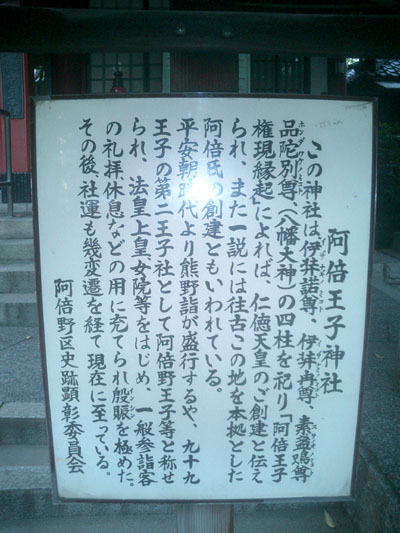 阿倍王子神社
この神社は、伊弉諾尊、伊弉冉尊、素盞嗚尊
品陀別尊（八幡大神）の四柱を祀り「阿倍王子
権現縁起」によれば、仁徳天皇のご創建と伝え
られ、また一説には往古この地を本拠とした
阿倍氏の創建ともいわれている。
平安朝時代より熊野詣が盛行するや、九十九
王子の第二王子社として阿倍野王子等と称せ
られ、法皇上皇、女院等をはじめ、一般参詣客
の礼拝休息などの用に充てられ殷賑を極めた。
その後、社運も幾変遷を経て現在に至っている。
阿倍野区史跡顕彰委員会